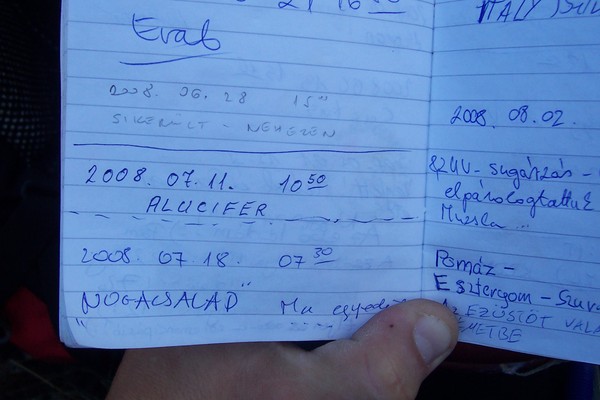 Evab
2008. 06. 28 15"
SIKERÜLT - NEHEZEN
2008. 07. 11. 10 50
ALUCIFER
2008. 07 18. 07 30
"NOGACSALÁD" Ma
ITALY
2008. 08. 02.
UV - sugárzás -
elpárologtattuk
Pomáz -
Esztergom -
AZ EZÜSTÖT